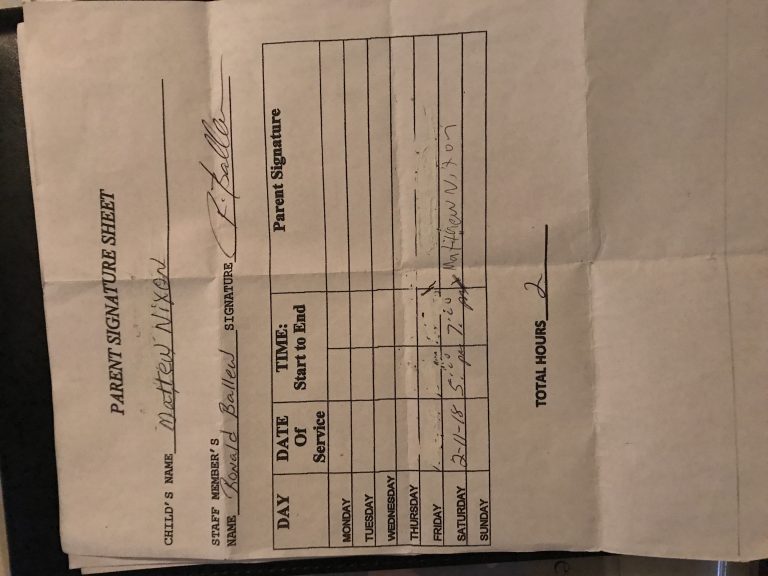 PARENT SIGNATURE SHEET
CHILD'S NAME Mattew Nixon
STAFF MEMBER'S
NAME Ronald Ballew SIGNATURE R. Balle
DAY DATE Of Service TIME: Start to End Parent Signature
MONDAY
TUESDAY
WEDNESDAY
THURSDAY
FRIDAY
SATURDAY 2-11-18 5:20 pm 7:20 pm Matthew Nixon
SUNDAY
TOTAL HOURS 2